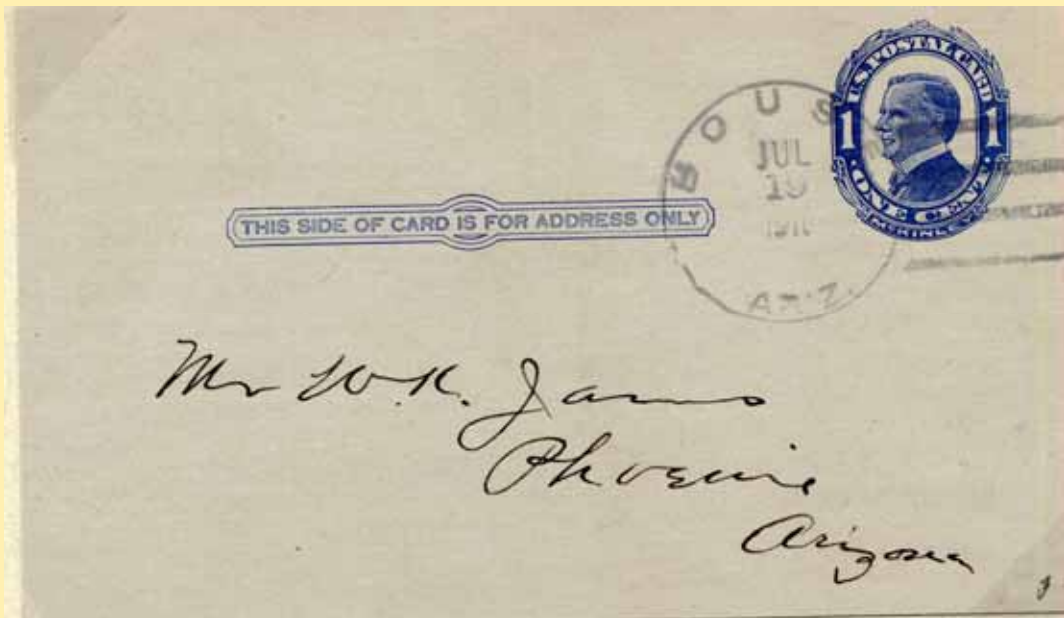 U.S. POSTAL CARD
1 1
ONE CENT
BOUS
JUL
19
ARIZ.
THIS SIDE OF CARD IS FOR ADDRESS ONLY
Mr W. K. James
Phoenix
Arizona